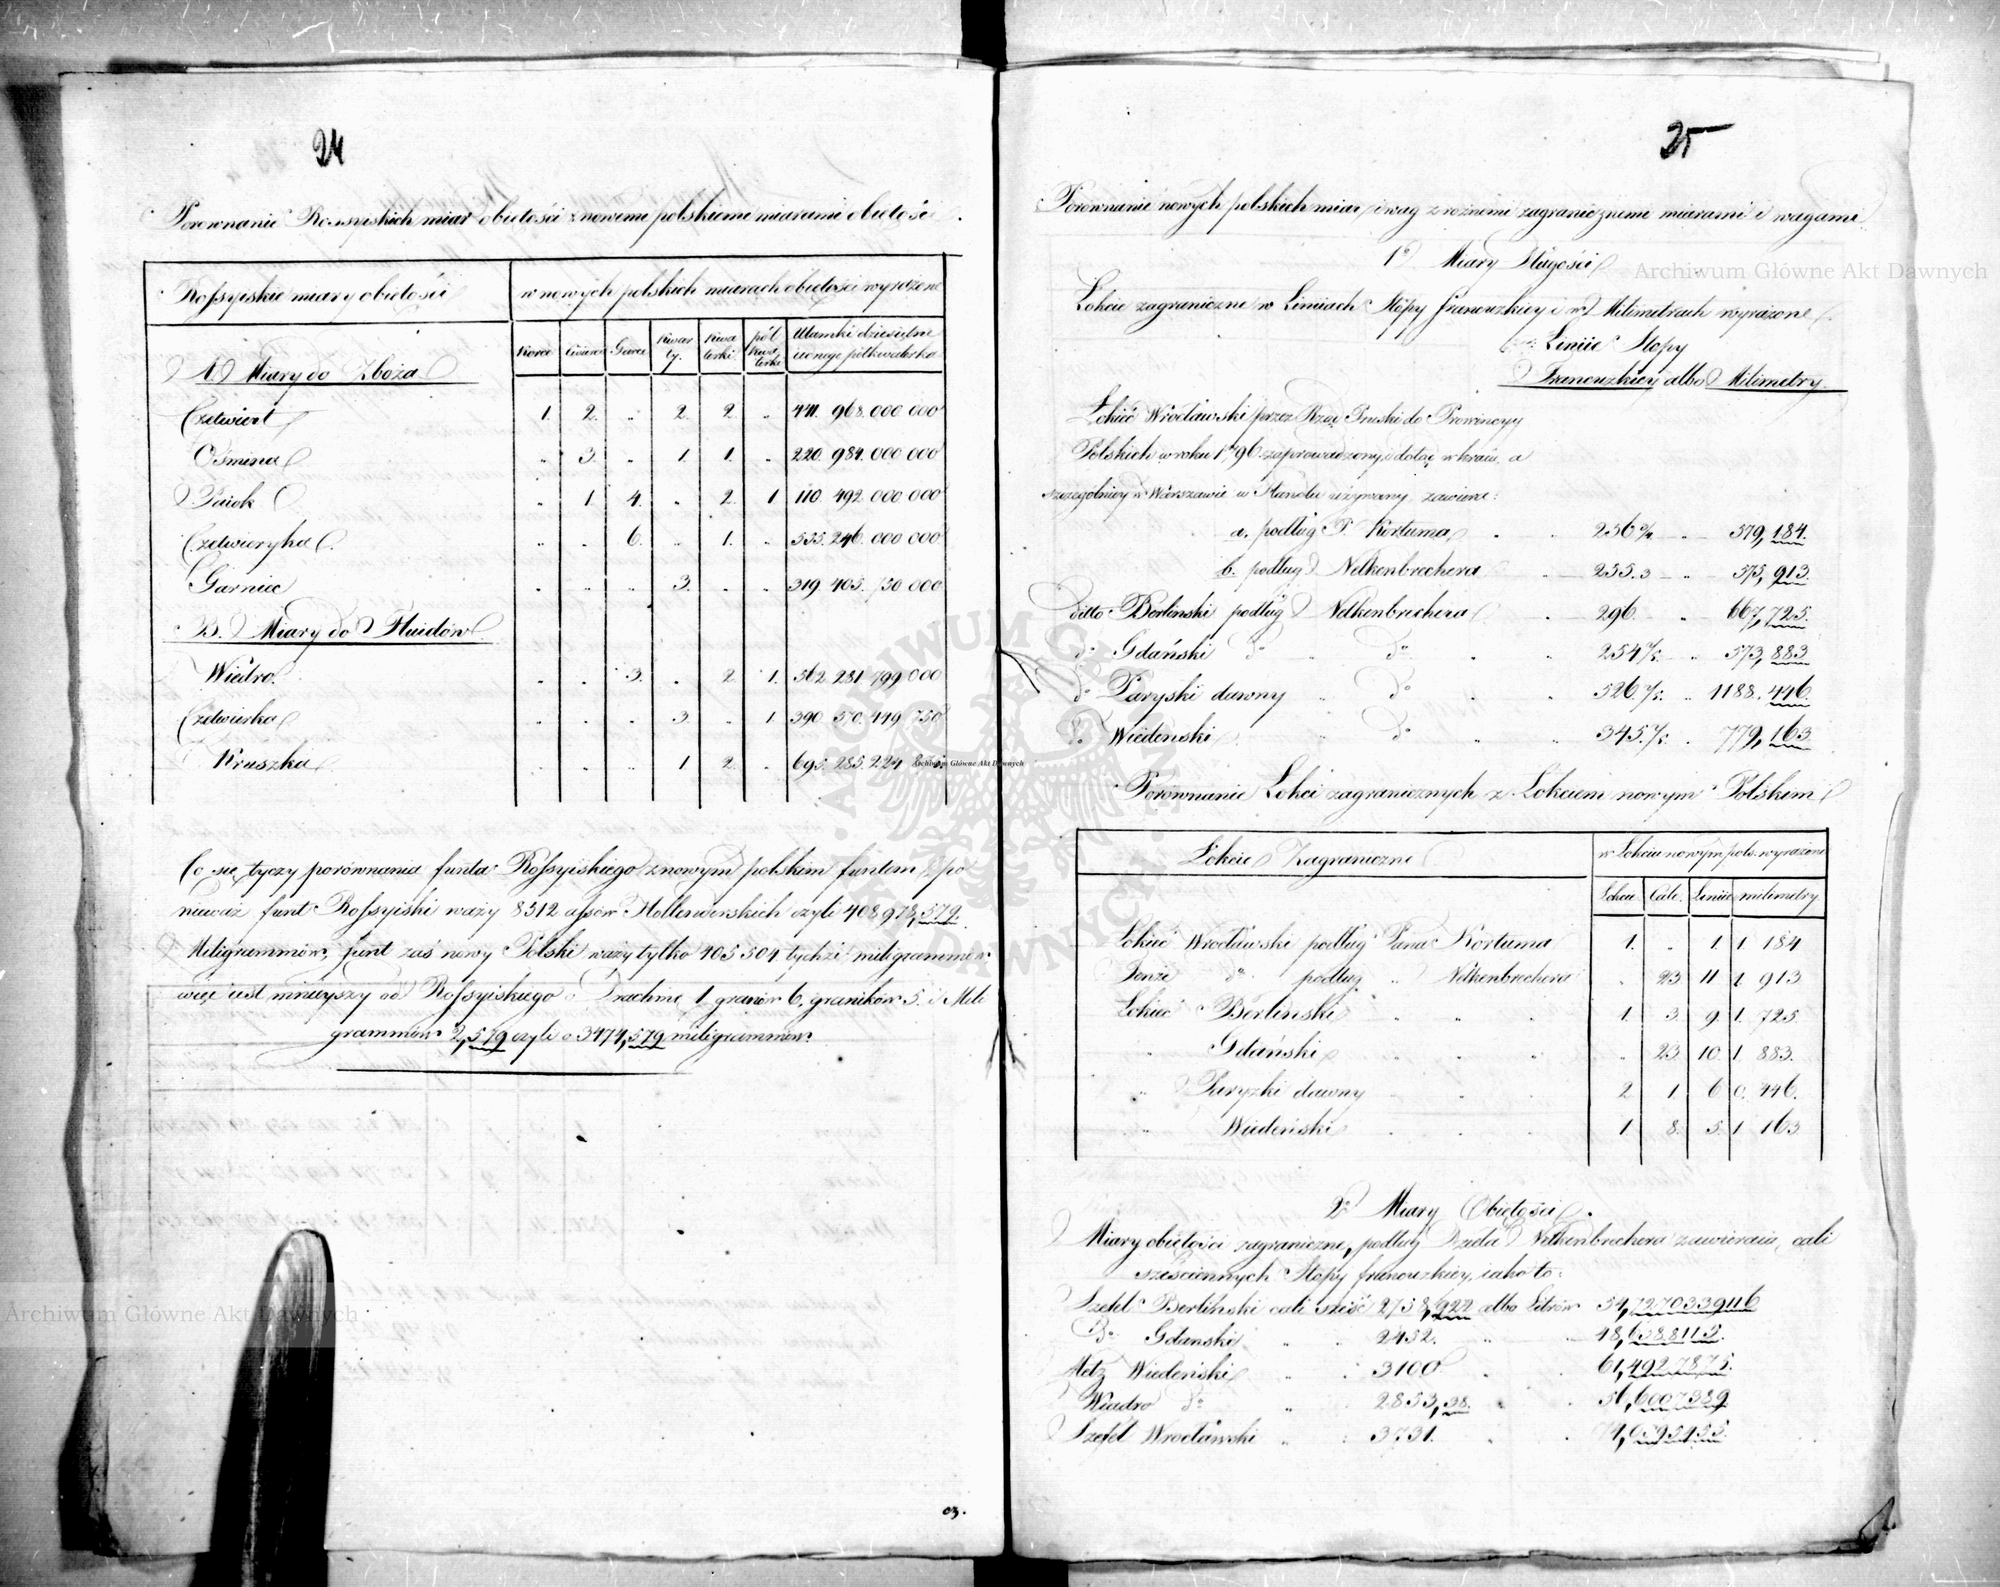 24
Porownanie Rossyiskich miar obiętości z nowemi polskiemi miarami obiętości.
Rossyiskie miary obiętości
w nowych polskich miarach obiętości wyrażone
Korce Ćwierci Garce Kwarty. Kwaterki pół Kwaterki Ułamki dziesiętne iednego półkwaterka
A. Miary do Zboża
Czetwiert 1. 2. „ 2. 2. „ 441. 968. 000 000
Osmina „ 3. „ 1. 1. „ 220. 984. 000 000
Paiok „ 1. 4. „ 2. 1 110. 492. 000 000
Czetwieryka „ „ 6. „ 1. „ 555. 246. 000 000
Garniec „ „ „ 3. „ „ 319. 405. 750 000
B. Miary do Fluidów
Wiedro. „ „ 3. „ 2 1. 562 281 799 000
Czetwierka „ „ „ 3. „ 1. 390. 570. 449 750
Kruszka „ „ „ 1 2. „ 695. 285. 224 875.
Co się tyczy porównania funta Rossyiskiego z nowym polskim funtem, po
nieważ funt Rossyiski waży 8512 assów Hollenderskich czyli 408978,579.
Miligrammów, funt zaś nowy Polski waży tylko 405504 tychże miligrammów
więc iest mnieyszy od Rossyiskiego o Drachmę 1 granów 6. graników 5. i Mili
grammów 2,579 czyli o 3474,579 miligrammów.
03.
25
Porownanie nowych polskich miar i wag z rożnemi zagranicznemi miarami i wagami
1o Miary Długości
Łokcie zagraniczne w Liniiach Stopy francuzkiey i w Milimetrach wyrażone
Liniie Stopy
Francuzkiey albo Milimetry.
Łokieć Wrocławski przez Rząd Pruski do Prowincyy
Polskich w roku 1796 zaprowadzony i dotąd w kraiu, a
szczegolniey w Warszawie w Handlu używany, zawiera:
a. podług P. Kortuma „ 256 „ 579,184.
b. podług Nelkenbrechera „ 255.3 „ 575,913.
ditto Berlinski podług Nelkenbrechera „ 296. „ 667,725.
do Gdański do „ do „ 254 „ 573,883
do Paryski dawny „ do „ 526 „ 1188,446.
do Wiedenski „ do „ 345. „ 779,163
Porównanie Łokci zagranicznych z Łokciem nowym Polskim
Łokcie Zagraniczne
w Łokciu nowym pols. wyrażone
Łokcie Cale. Liniie milimetry.
Łokieć Wrocławski podług Pana Kortuma 1. „ 1. 1 184
Tenże do podług „ Nelkenbrechera „ 23 11 1 913
Łokieć Berlinski „ „ „ 1. 3. 9. 1. 725
„ Gdański „ „ „ „ 23. 10. 1 883.
„ Paryzki dawny „ „ „ 2 1. 6 0. 446.
„ Wiedeński „ „ „ 1. 8. 5. 1 163
2o Miary Obiętości.
Miary obiętości zagraniczne, podług Dzieła Nelkenbrechera zawieraią, cali
sześciennych Stopy francuzkiey, iako to:
Szefel Berliński cali sześć 2758,922 albo Litrów 54,727033916
Do Gdanski „ „ 2452. „ 48,6388113.
Metz Wiedeński „ „ 3100 „ 61,4927875.
Wiadro do „ 2853,38. „ 56,6007389
Szefel Wrocławski „ „ 3731. „ 74,0095455.
Archiwum Główne Akt Dawnych
Archiwum Główne Akt Dawnych
Archiwum Główne Akt Dawnych
ARCHIWUM GŁÓWNE AKT DAWNYCH